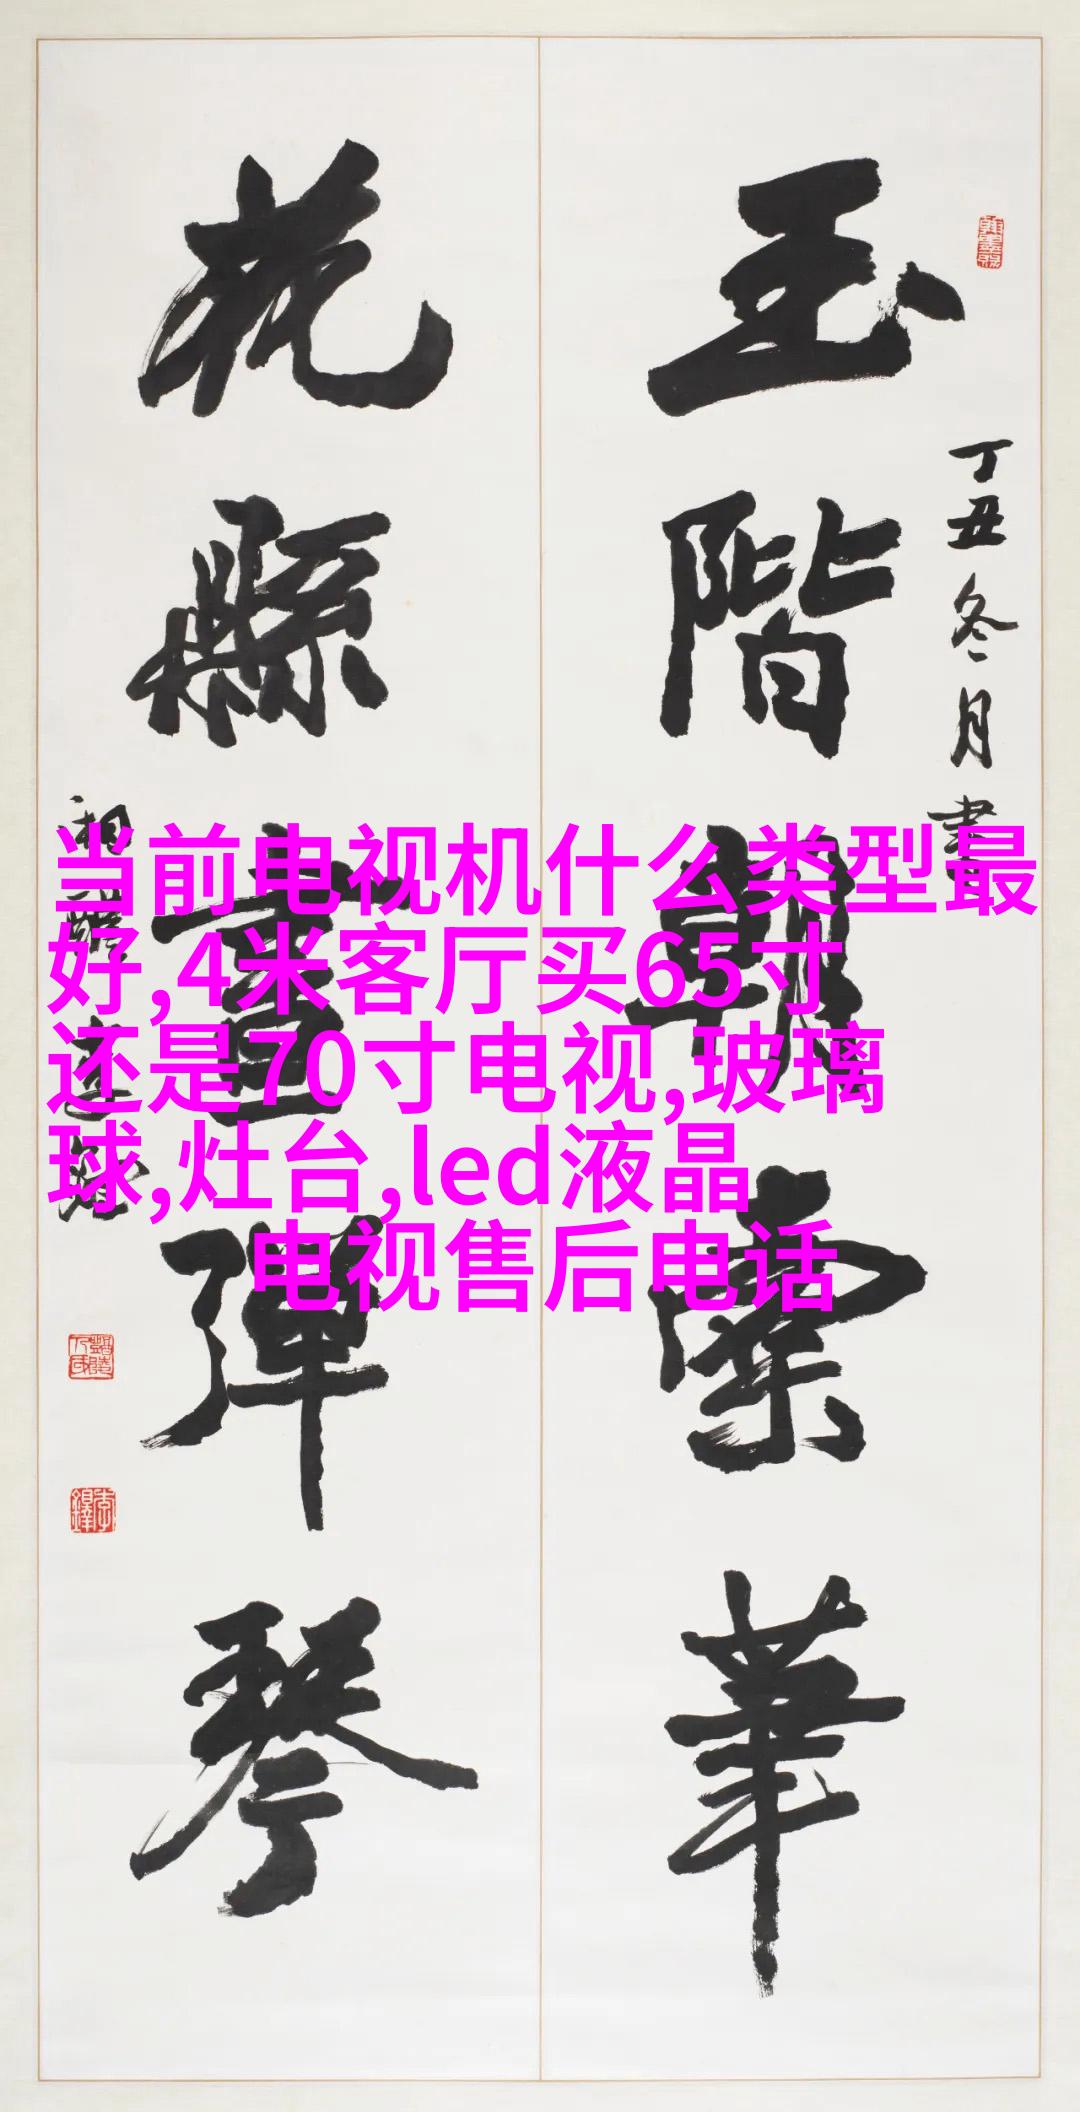 玉階朝雲華
丁丑冬月書
花縣畫彈琴
当前电视机什么类型最
好,4米客厅买65寸
还是70寸电视,玻璃
球,灶台,led液晶
电视售后电话